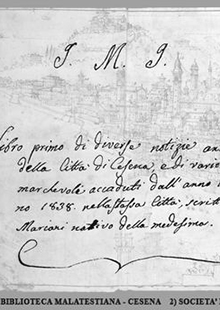 J. M. J.
Libro primo di diverse notizie
della Città di Cesena, e di varie
marchevole accaduti dall' anno
no 1838. nella stessa Città, scritt
Mariani nativo della medesima.
BIBLIOTECA MALATESTIANA - CESENA 2) SOCIETA'